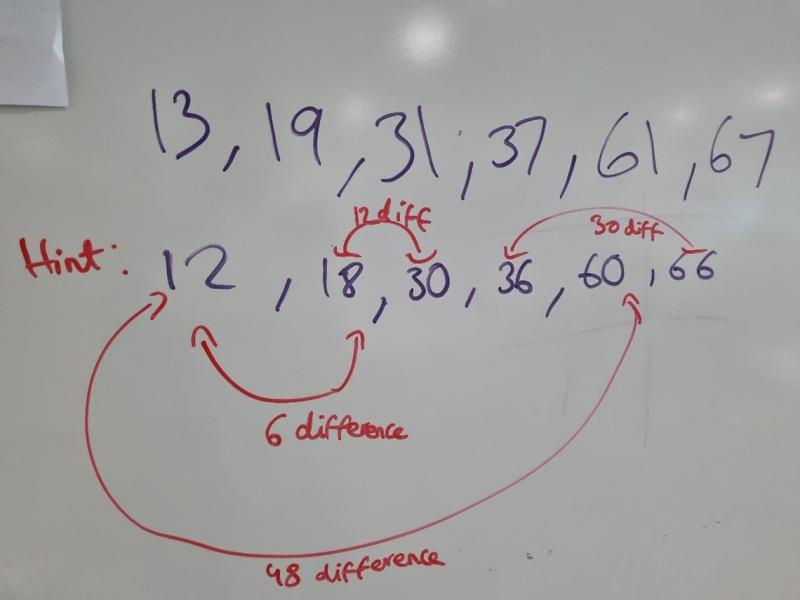 13, 19, 31, 37, 61, 67
12 diff
30 diff
Hint: 12, 18, 30, 36, 60, 66
6 difference
48 difference